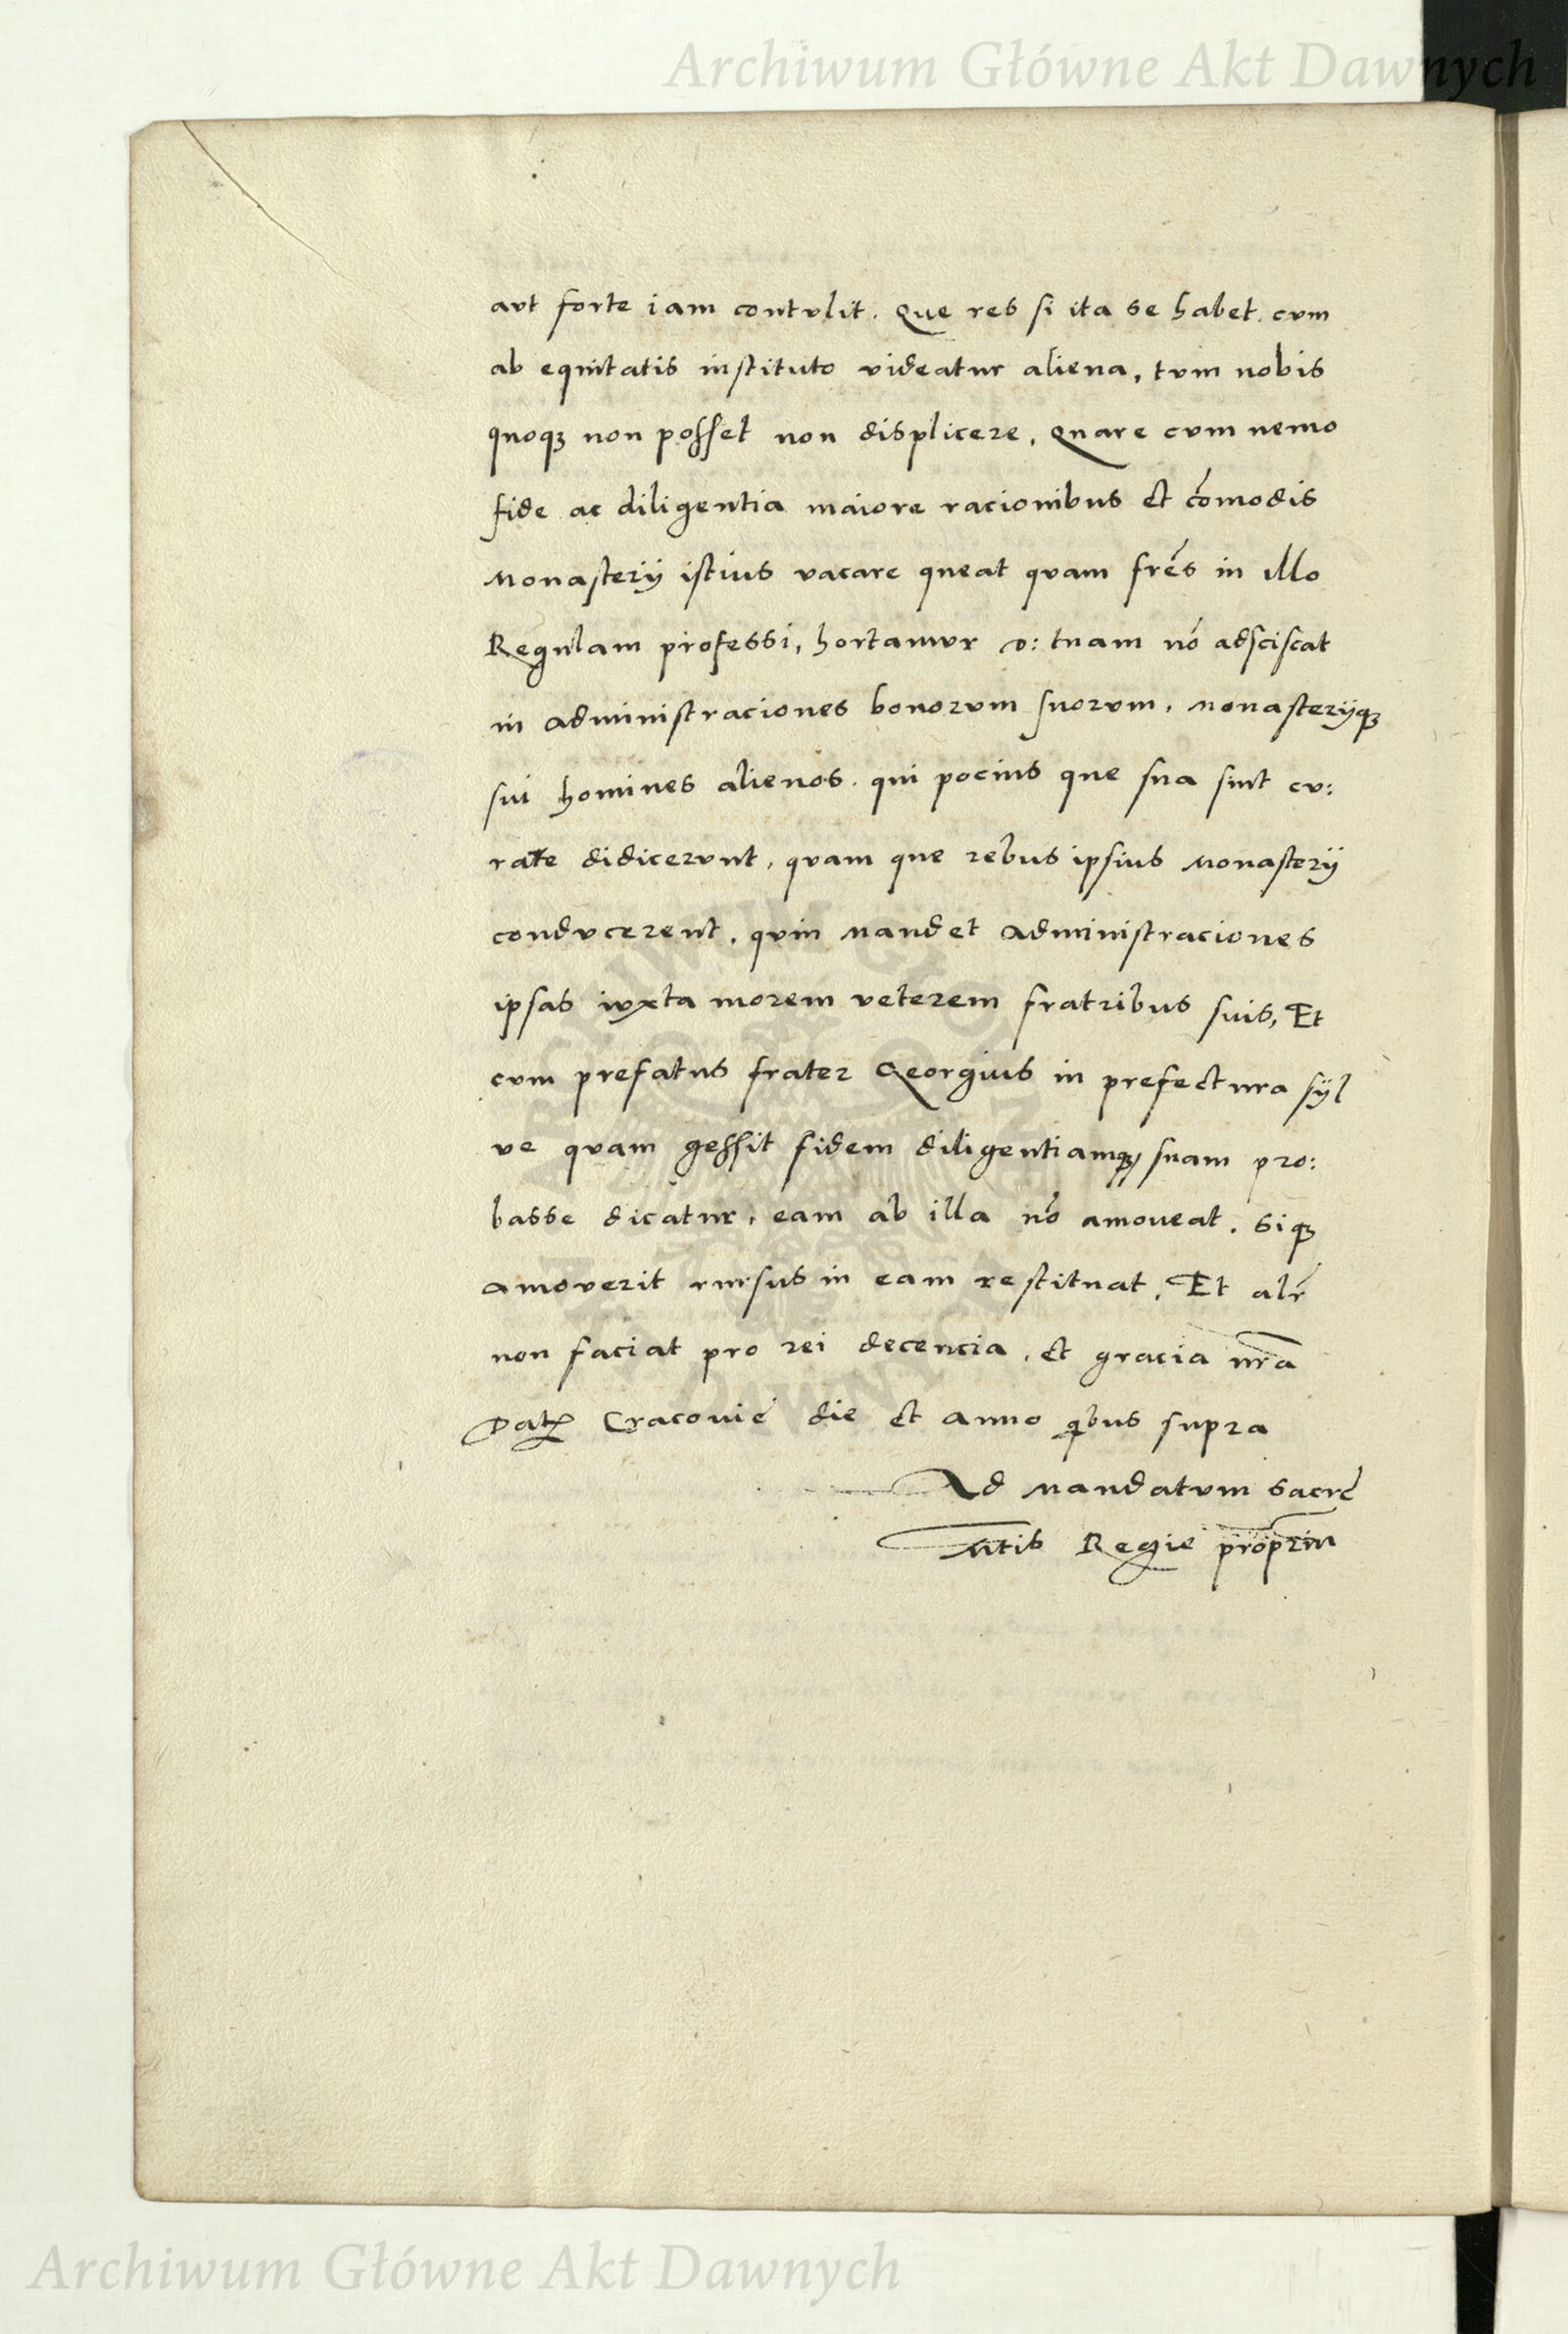 Archiwum Główne Akt Dawnych
avt forte iam contvlit. Que res si ita se habet. cvm
ab equitatis instituto videatur aliena, tvm nobis
quoqꝫ non posset non displicere, Quare cvm nemo
fide ac diligentia maiore racionibus et cōmodis
Monasterij istius vacare queat qvam frēs in illo
Regulam professi, hortamvr D: tuam nō adsciscat
in administraciones bonorvm suorvm, Monasterijqꝫ
sui homines alienos. qui pocius que sua sint cv:
rare didicervnt, qvam que rebus ipsius Monasterij
condvcerent. qvin mandet administraciones
ipsas ivxta morem veterem fratribus suis, Et
cvm prefatus frater Georgius in prefectura syl
ve qvam gessit fidem diligentiamqꝫ suam pro:
basse dicatur, eam ab illa nō amoveat. Siqꝫ
amoverit rursus in eam restituat. Et alr̄
non faciat pro rei decencia, et gracia nrā
Datꝭ Cracovie die et anno qͥbus supra
Ad mandatvm sacrę
Mtis Regie propriū
ARCHIWUM GŁÓWNE AKT DAWNYCH
Archiwum Główne Akt Dawnych